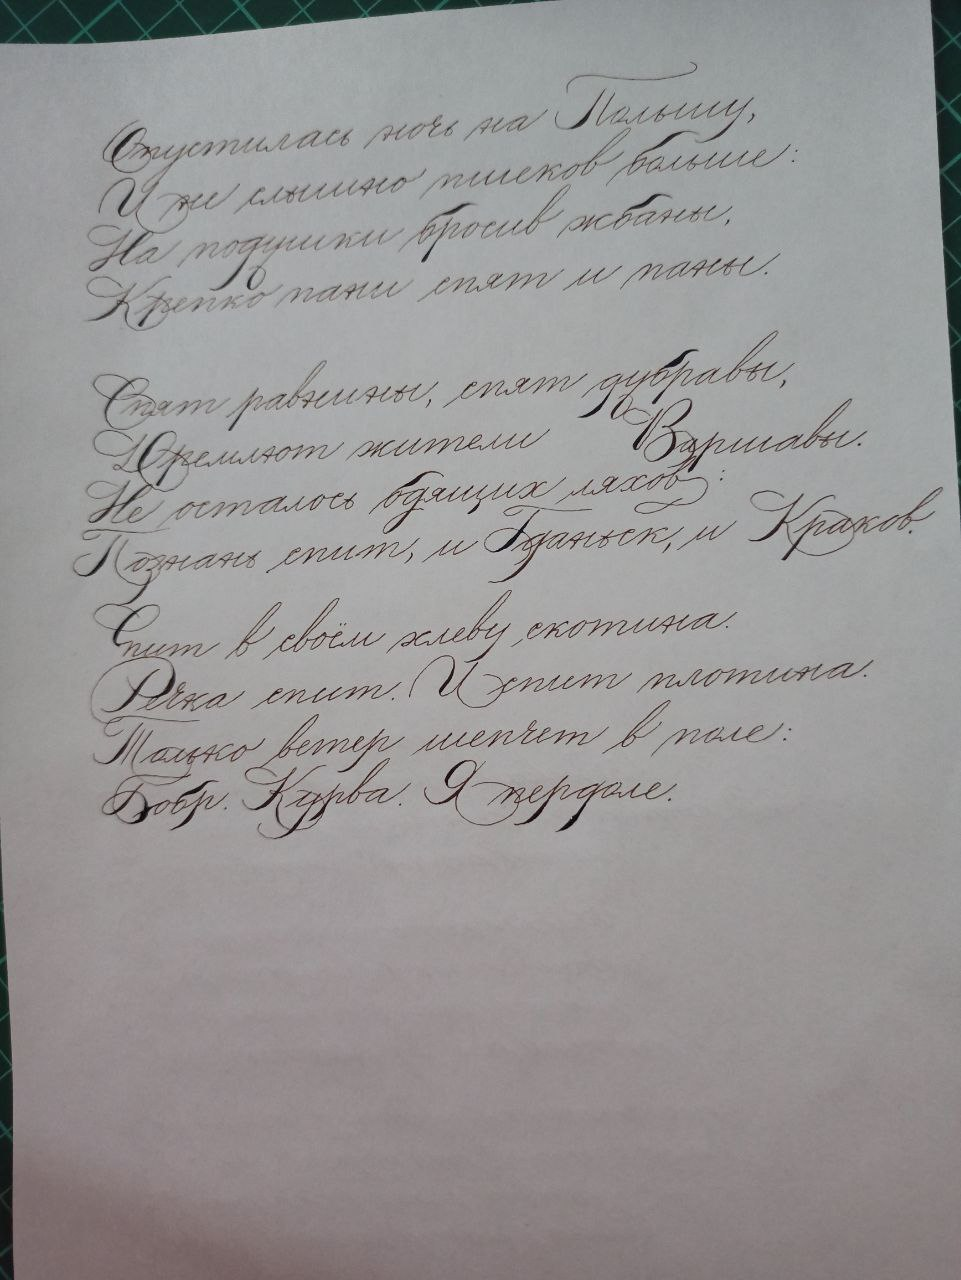 Опустилась ночь на Польшу,
И не слышно пшеков больше:
На подушки бросив жбаны,
Крепко пани спят и паны.
Спят равнины, спят дубравы,
Дремлют жители Варшавы.
Не осталось бдящих ляхов:
Познань спит, и Гданьск, и Краков.
Спит в своём хлеву скотина.
Речка спит. И спит плотина.
Только ветер шепчет в поле:
Бобр. Курва. Я пердоле.